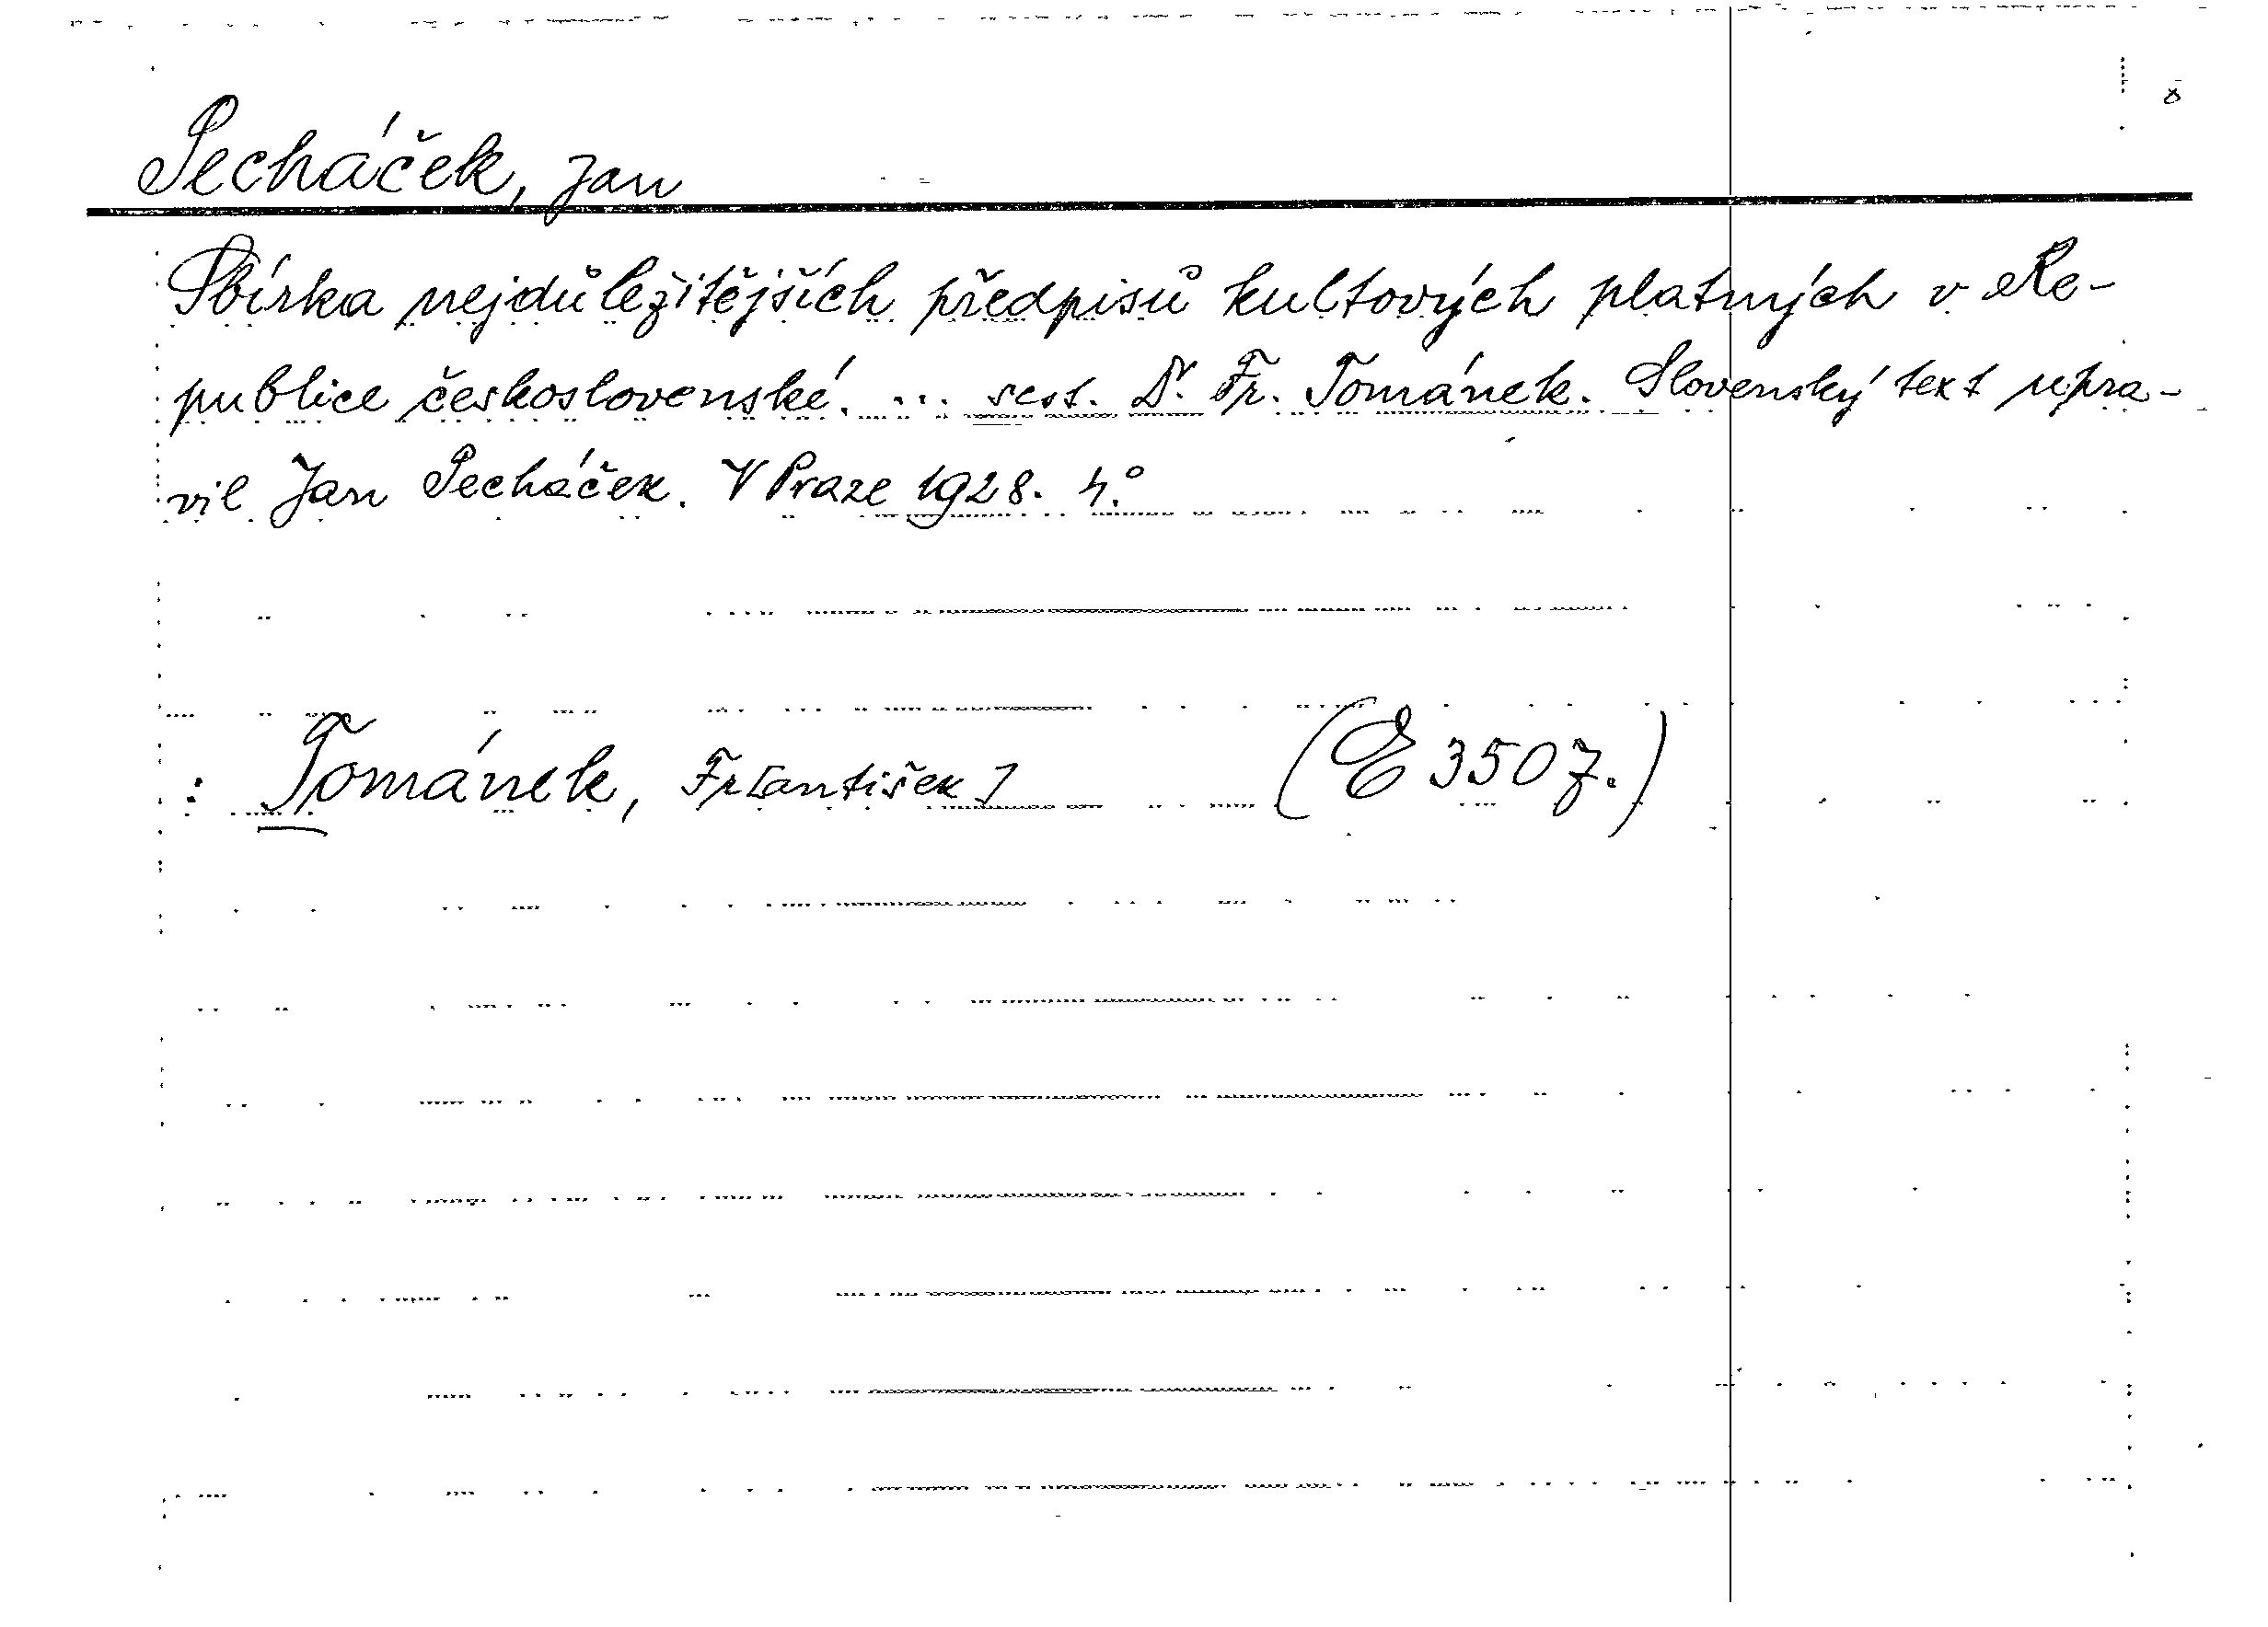 Pecháček, Jan
Sbírka nejdůležitějších předpisů kultových platných v Re-
publice československé. ... sest. Dr. Fr. Tománek. Slovenský text upra-
vil Jan Pecháček. V Praze 1928. 4.°
: Tománek, Fr[antišek] (E 3507.)